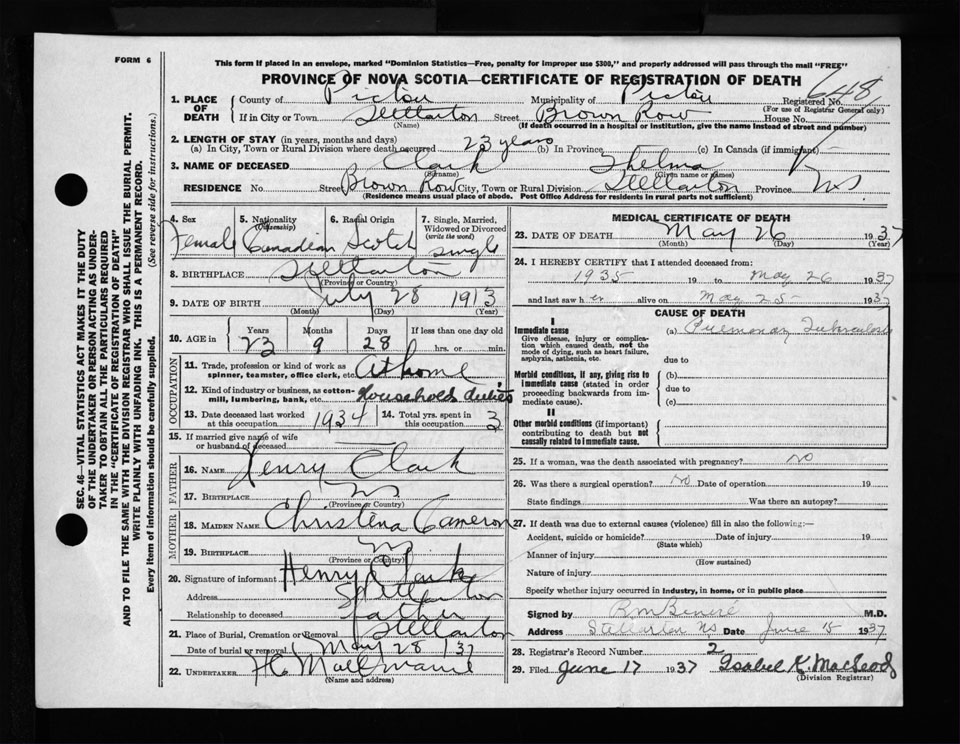 FORM 6
This form if placed in an envelope, marked "Dominion Statistics—Free, penalty for improper use $300," and properly addressed will pass through the mail "FREE"
PROVINCE OF NOVA SCOTIA—CERTIFICATE OF REGISTRATION OF DEATH
648
1. PLACE OF DEATH
County of Pictou Municipality of Pictou Registered No.
(For use of Registrar General only)
If in City or Town Stellarton Street Brown Row House No.
(Name) (If death occurred in a hospital or institution, give the name instead of street and number)
2. LENGTH OF STAY (in years, months and days)
(a) In City, Town or Rural Division where death occurred 23 years (b) In Province (c) In Canada (if immigrant)
3. NAME OF DECEASED Clark Thelma
(Surname) (Given name or names)
RESIDENCE No. Street Brown Row City, Town or Rural Division Stellarton Province NS
(Residence means usual place of abode. Post Office Address for residents in rural parts not sufficient)
4. Sex Female
5. Nationality (Citizenship) Canadian
6. Racial Origin Scotch
7. Single, Married, Widowed or Divorced (write the word) single
8. BIRTHPLACE Stellarton
(Province or Country)
9. DATE OF BIRTH July 28 1913
(Month) (Day) (Year)
10. AGE in Years Months Days If less than one day old
23 9 28 hrs. or min.
OCCUPATION
11. Trade, profession or kind of work as spinner, teamster, office clerk, etc. At home
12. Kind of industry or business, as cotton-mill, lumbering, bank, etc. Household duties
13. Date deceased last worked at this occupation 1934
14. Total yrs. spent in this occupation 3
15. If married give name of wife or husband of deceased
FATHER
16. NAME Henry Clark
17. BIRTHPLACE NS
(Province or Country)
MOTHER
18. MAIDEN NAME Christena Cameron
19. BIRTHPLACE NS
(Province or Country)
20. Signature of informant Henry Clark
Address Stellarton
Relationship to deceased father
21. Place of Burial, Cremation or Removal Stellarton
Date of burial or removal May 28 /37
22. UNDERTAKER
(Name and address)
MEDICAL CERTIFICATE OF DEATH
23. DATE OF DEATH May 26 1937
(Month) (Day) (Year)
24. I HEREBY CERTIFY that I attended deceased from:
1935 19 to May 26 1937
and last saw her alive on May 25 1937
CAUSE OF DEATH
I
Immediate cause
Give disease, injury or complication which caused death, not the mode of dying, such as heart failure, asphyxia, asthenia, etc.
(a) Pulmonary Tuberculosis
due to
Morbid conditions, if any, giving rise to immediate cause (stated in order proceeding backwards from immediate cause).
(b)
due to
(c)
II
Other morbid conditions (if important) contributing to death but not causally related to immediate cause.
25. If a woman, was the death associated with pregnancy? No
26. Was there a surgical operation? No Date of operation 19
State findings Was there an autopsy?
27. If death was due to external causes (violence) fill in also the following:—
Accident, suicide or homicide? Date of injury 19
(State which)
Manner of injury
(How sustained)
Nature of injury
Specify whether injury occurred in industry, in home, or in public place
Signed by M.D.
Address Stellarton NS Date June 15 1937
28. Registrar's Record Number 2
29. Filed June 17 1937 Isabel K. MacLeod
(Division Registrar)
SEC. 46—VITAL STATISTICS ACT MAKES IT THE DUTY
OF THE UNDERTAKER OR PERSON ACTING AS UNDER-
TAKER TO OBTAIN ALL THE PARTICULARS REQUIRED
IN THE "CERTIFICATE OF REGISTRATION OF DEATH"
AND TO FILE THE SAME WITH THE DIVISION REGISTRAR WHO SHALL ISSUE THE BURIAL PERMIT.
WRITE PLAINLY WITH UNFADING INK. THIS IS A PERMANENT RECORD.
Every item of information should be carefully supplied. (See reverse side for instructions.)